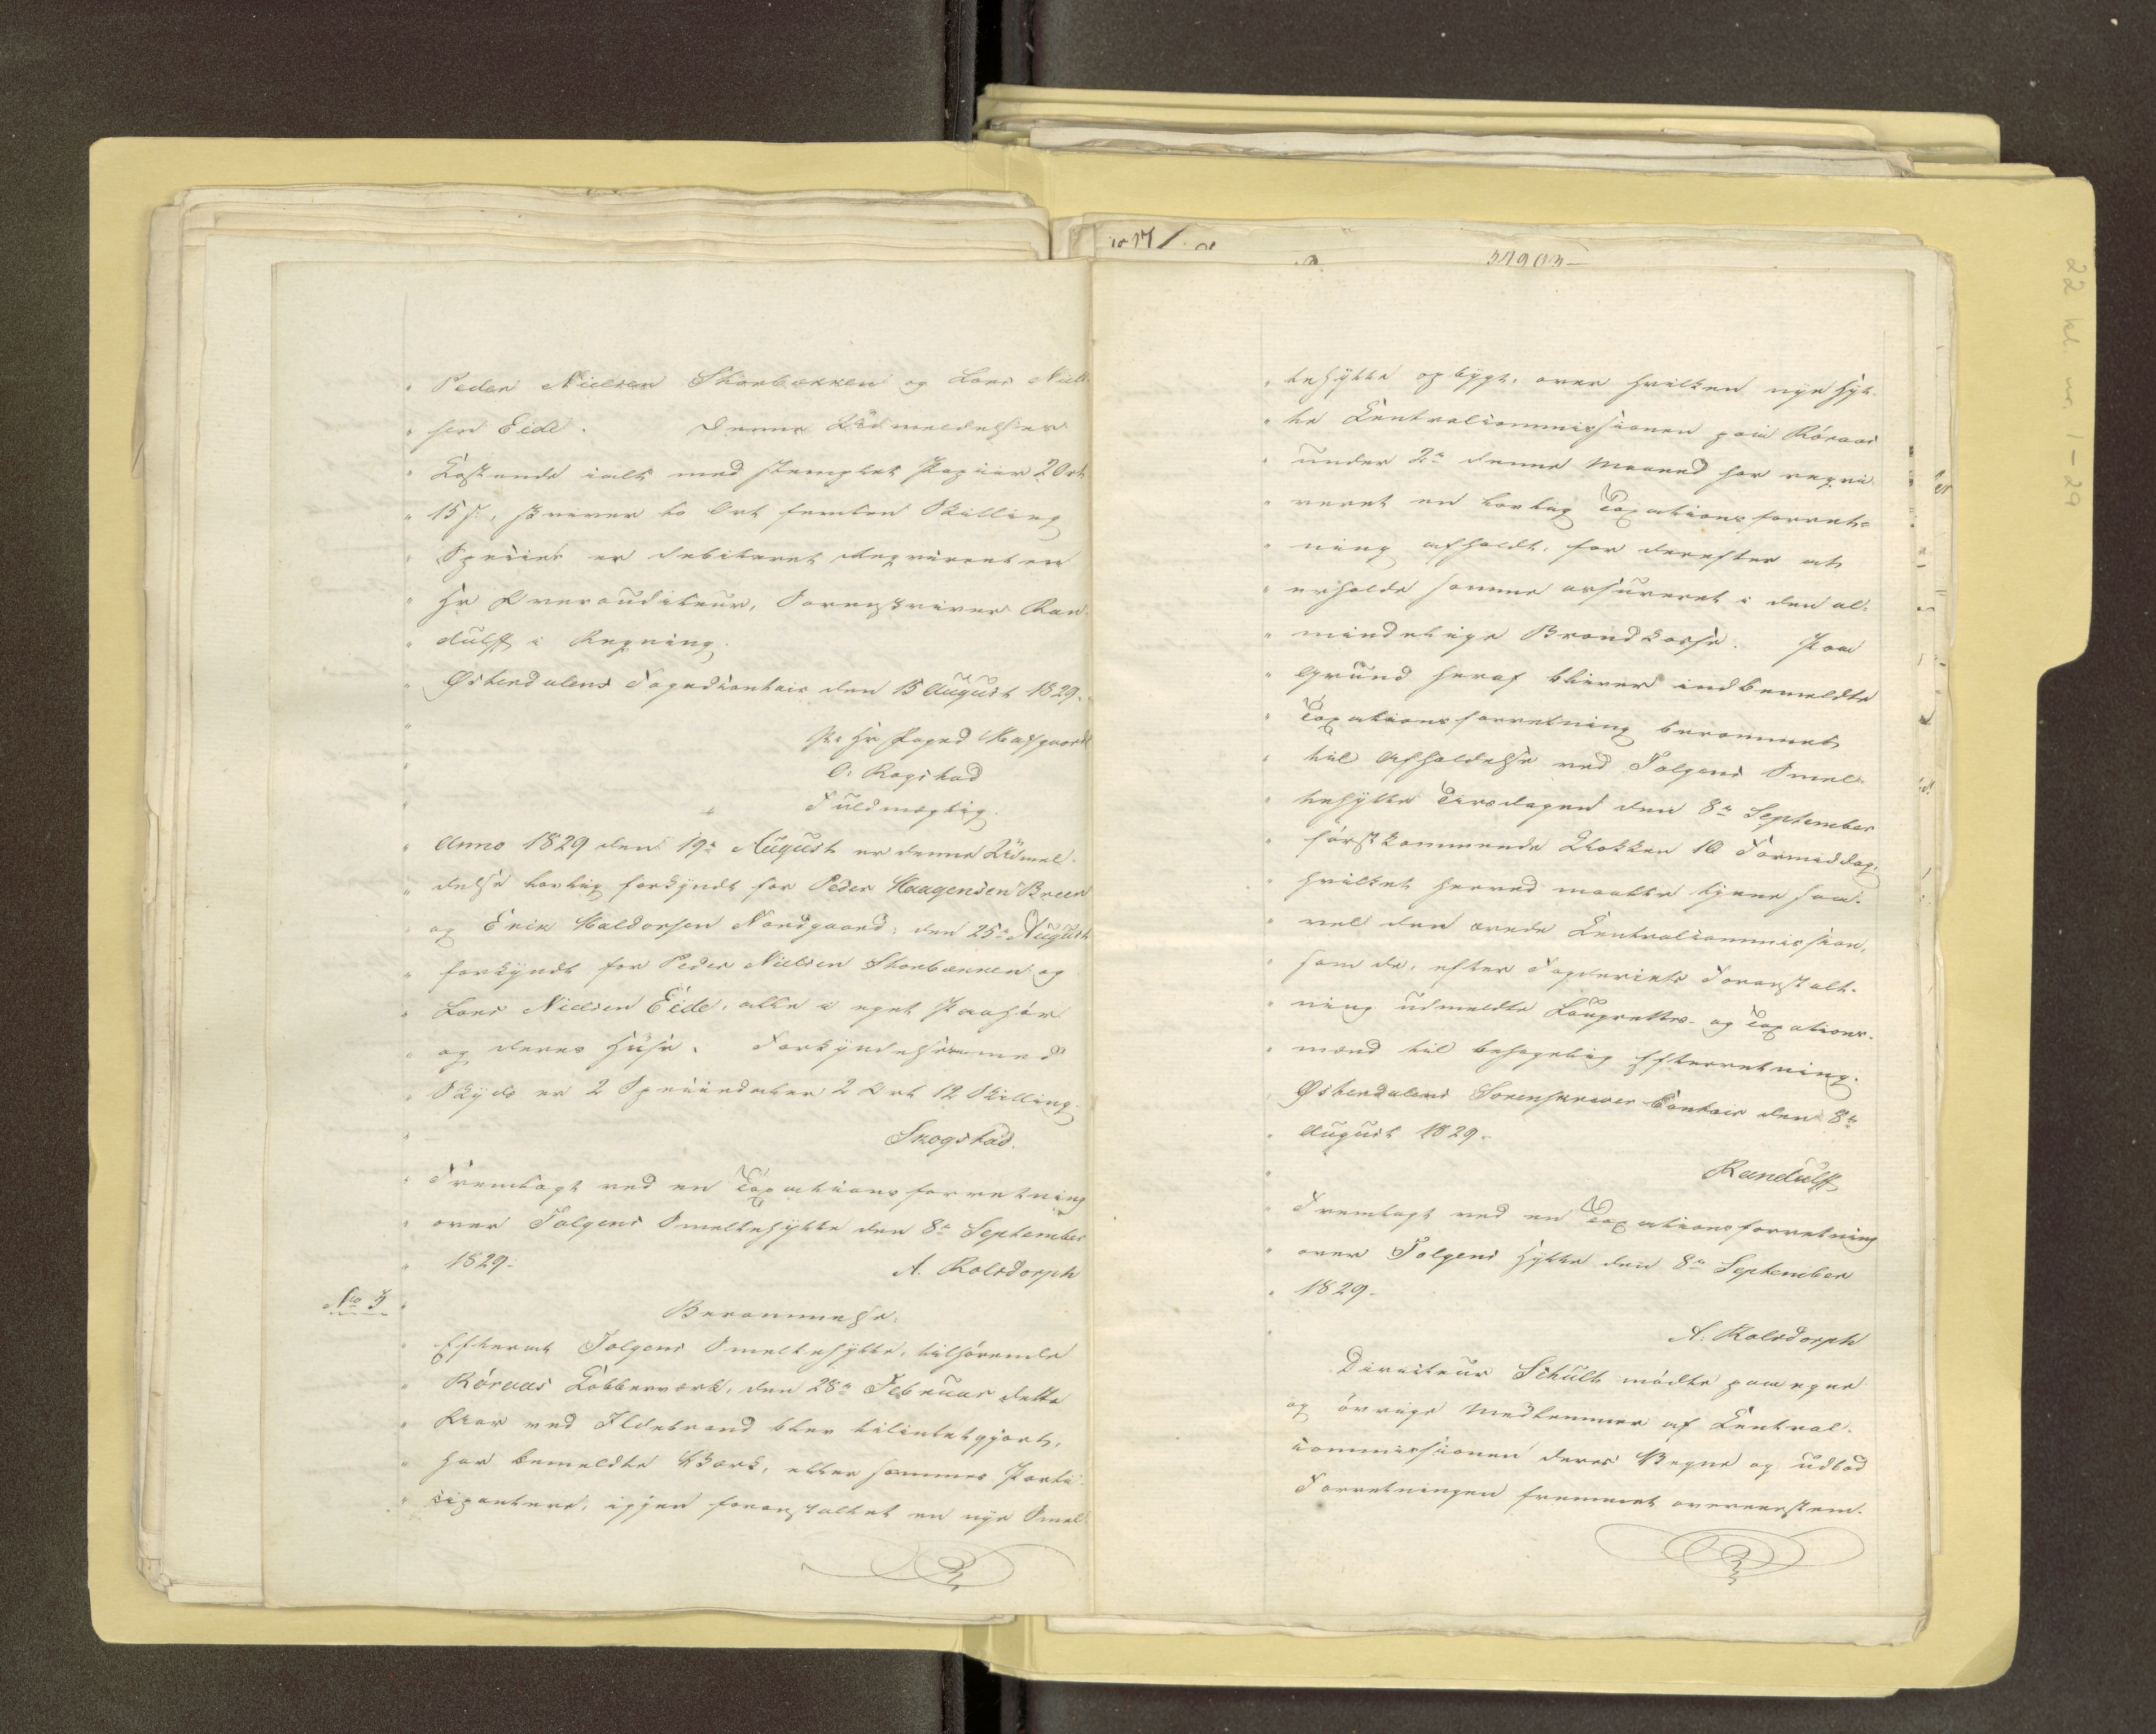 " Peder Nielsen Storbækken og Lars Niel-
" sen Eide. Denne Udmeldelses
" Kostende ialt med stemplet Papiir 2 Ort
" 15 s., skriver to Ort femten Skilling
" Species er debiteret Reqvirenten
" Hr Overauditeur, Sorenskriver Ran-
" dulff i Regning.
" Østerdalens Fogedcontoir den 15 August 1829.
" Hr Foged
" O: Rogstad
" Fuldmægtig.
" Anno 1829 den 19de August er denne Udmel-
" delse lovlig forkyndt for Peder Haagensen Breen
" og Erik Haldorsen Nordgaard, den 25de August
" forkyndt for Peder Nielsen Storbækken og
" Lars Nielsen Eide, alle i eget Paahør
" og deres Huse. Forkyndelsen med
" Skyds er 2 Speciedaler 2 Ort 12 Skilling.
" Skogstad.
" Fremlagt ved en Taxationsforretning
" over Tolgens Smeltehytte den 8de September
" 1829. A. Rolsdorph
No 3 " Berammelse.
" Efterat Tolgens Smeltehytte, tilhørende
" Röraas Kobberværk, den 28de Februar dette
" Aar ved Ildebrand blev tilintetgjort,
" har bemeldte Værk, eller sammes Parti-
" cipantere, igjen foranstaltet en nye Smel-
54903
" tehytte opbygt, over hvilken nye Hyt-
" te Centralcommissionen paa Röraas
" under 2de denne Maaned har reqvi-
" reret en lovlig Taxationsforret-
" ning afholdt, for derefter at
" erholde samme assureret i den al-
" mindelige Brandkasse. Paa
" Grund heraf bliver indbemeldte
" Taxationsforretning berammet
" til Afholdelse ved Tolgens Smel-
" tehytte Tirsdagen den 8de September
" förstkommende Klokken 10 Formiddag,
" hvilket herved maatte tjene saa-
" vel den ærede Centralcommission,
" som de, efter Fogderiets Foranstalt-
" ning udmeldte Laugrettes- og Taxations-
" mænd til behagelig Efterretning.
" Østerdalens Sorenskriver Contoir den 8de
" August 1829.
" Randulff
" Fremlagt ved en Taxationsforretning
" over Tolgens Hytte den 8de September
" 1829.
" A. Rolsdorph
Directeur Schult mödte paa egne
og övrige Medlemmer af Central-
commissionen deres Vegne og udbad
Forretningen fremmet overeenstem-
22 kl. nr. 1-29